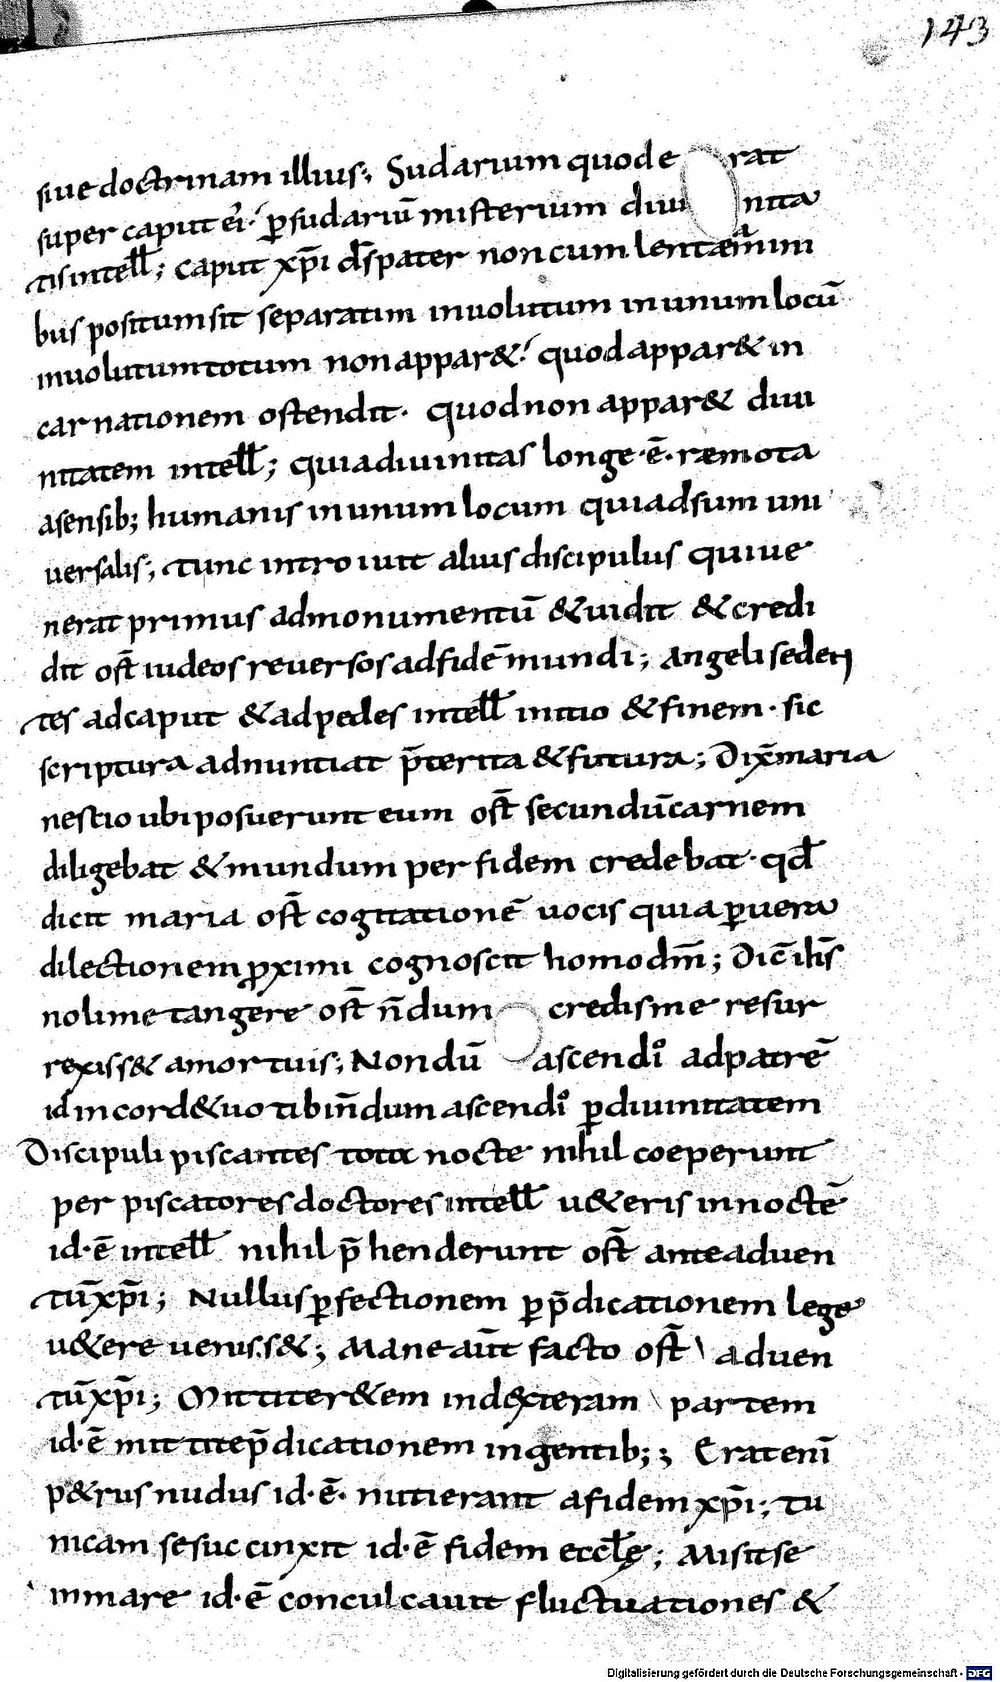 143
siue doctrinam illius; Sudarium quod e rat
super caput ei ; p̱ sudariū misterium diui nita
tis intell̄; caput xp̄i d̄s pater non cum lenteaminni
bus positum sit separatim inuolutum in unum locū
inuolutum totum non appar&; quod appar& in
carnationem ostendit. quod non appar& diui
nitatem intell̄; quia diuinitas longe ·ē· remota
a sensib; humanis in unum locum quia d̄s um uni
uersalis; tunc introiuit alius discipulus qui ue
nerat primus ad monumentū & uidit & credi
dit ost̄ iudeos reuersos ad fidē mundi; angeli seden
tes ad caput & ad pedes intell̄ initio & finem · sic
scriptura adnuntiat p̄terita & futura; Dix̄ maria
nescio ubi posuerunt eum ost̄ secundū carnem
diligebat & mundum per fidem credebat · qd̄
dicit maria ost̄ cogitationē uocis quia p̱ uera
dilectionem proximi cognoscit homo dm̄; Dic̄ ih̄s
noli me tangere ost̄ n̄dum credis me resur
rexiss& a mortuis; Nondū ascendi ad patrē
id in cord& uo tibi n̄dum ascendi p̱ diuinitatem
Discipuli piscantes tota nocte nihil coeperunt
per piscatores doctores intell̄ u&eris in noctē
id·ē intell̄ nihil p̄henderunt ost̄ ante aduen
tū xp̄i; Nullus p̱fectionem p̱ p̄dicationem lege
u&ere ueniss&; Mane aūt facto ost̄ aduen
tū xp̄i; Mittite r&em in dexteram partem
id·ē mittite p̄dicationem in gentib;; Erat enī
p&rus nudus id·ē· nutierant a fidem xp̄i; tu
nicam se succinxit id·ē fidem eccl̄ę; Misit se
in mare id·ē conculcauit fluctuationes &
Digitalisierung gefördert durch die Deutsche Forschungsgemeinschaft - DFG